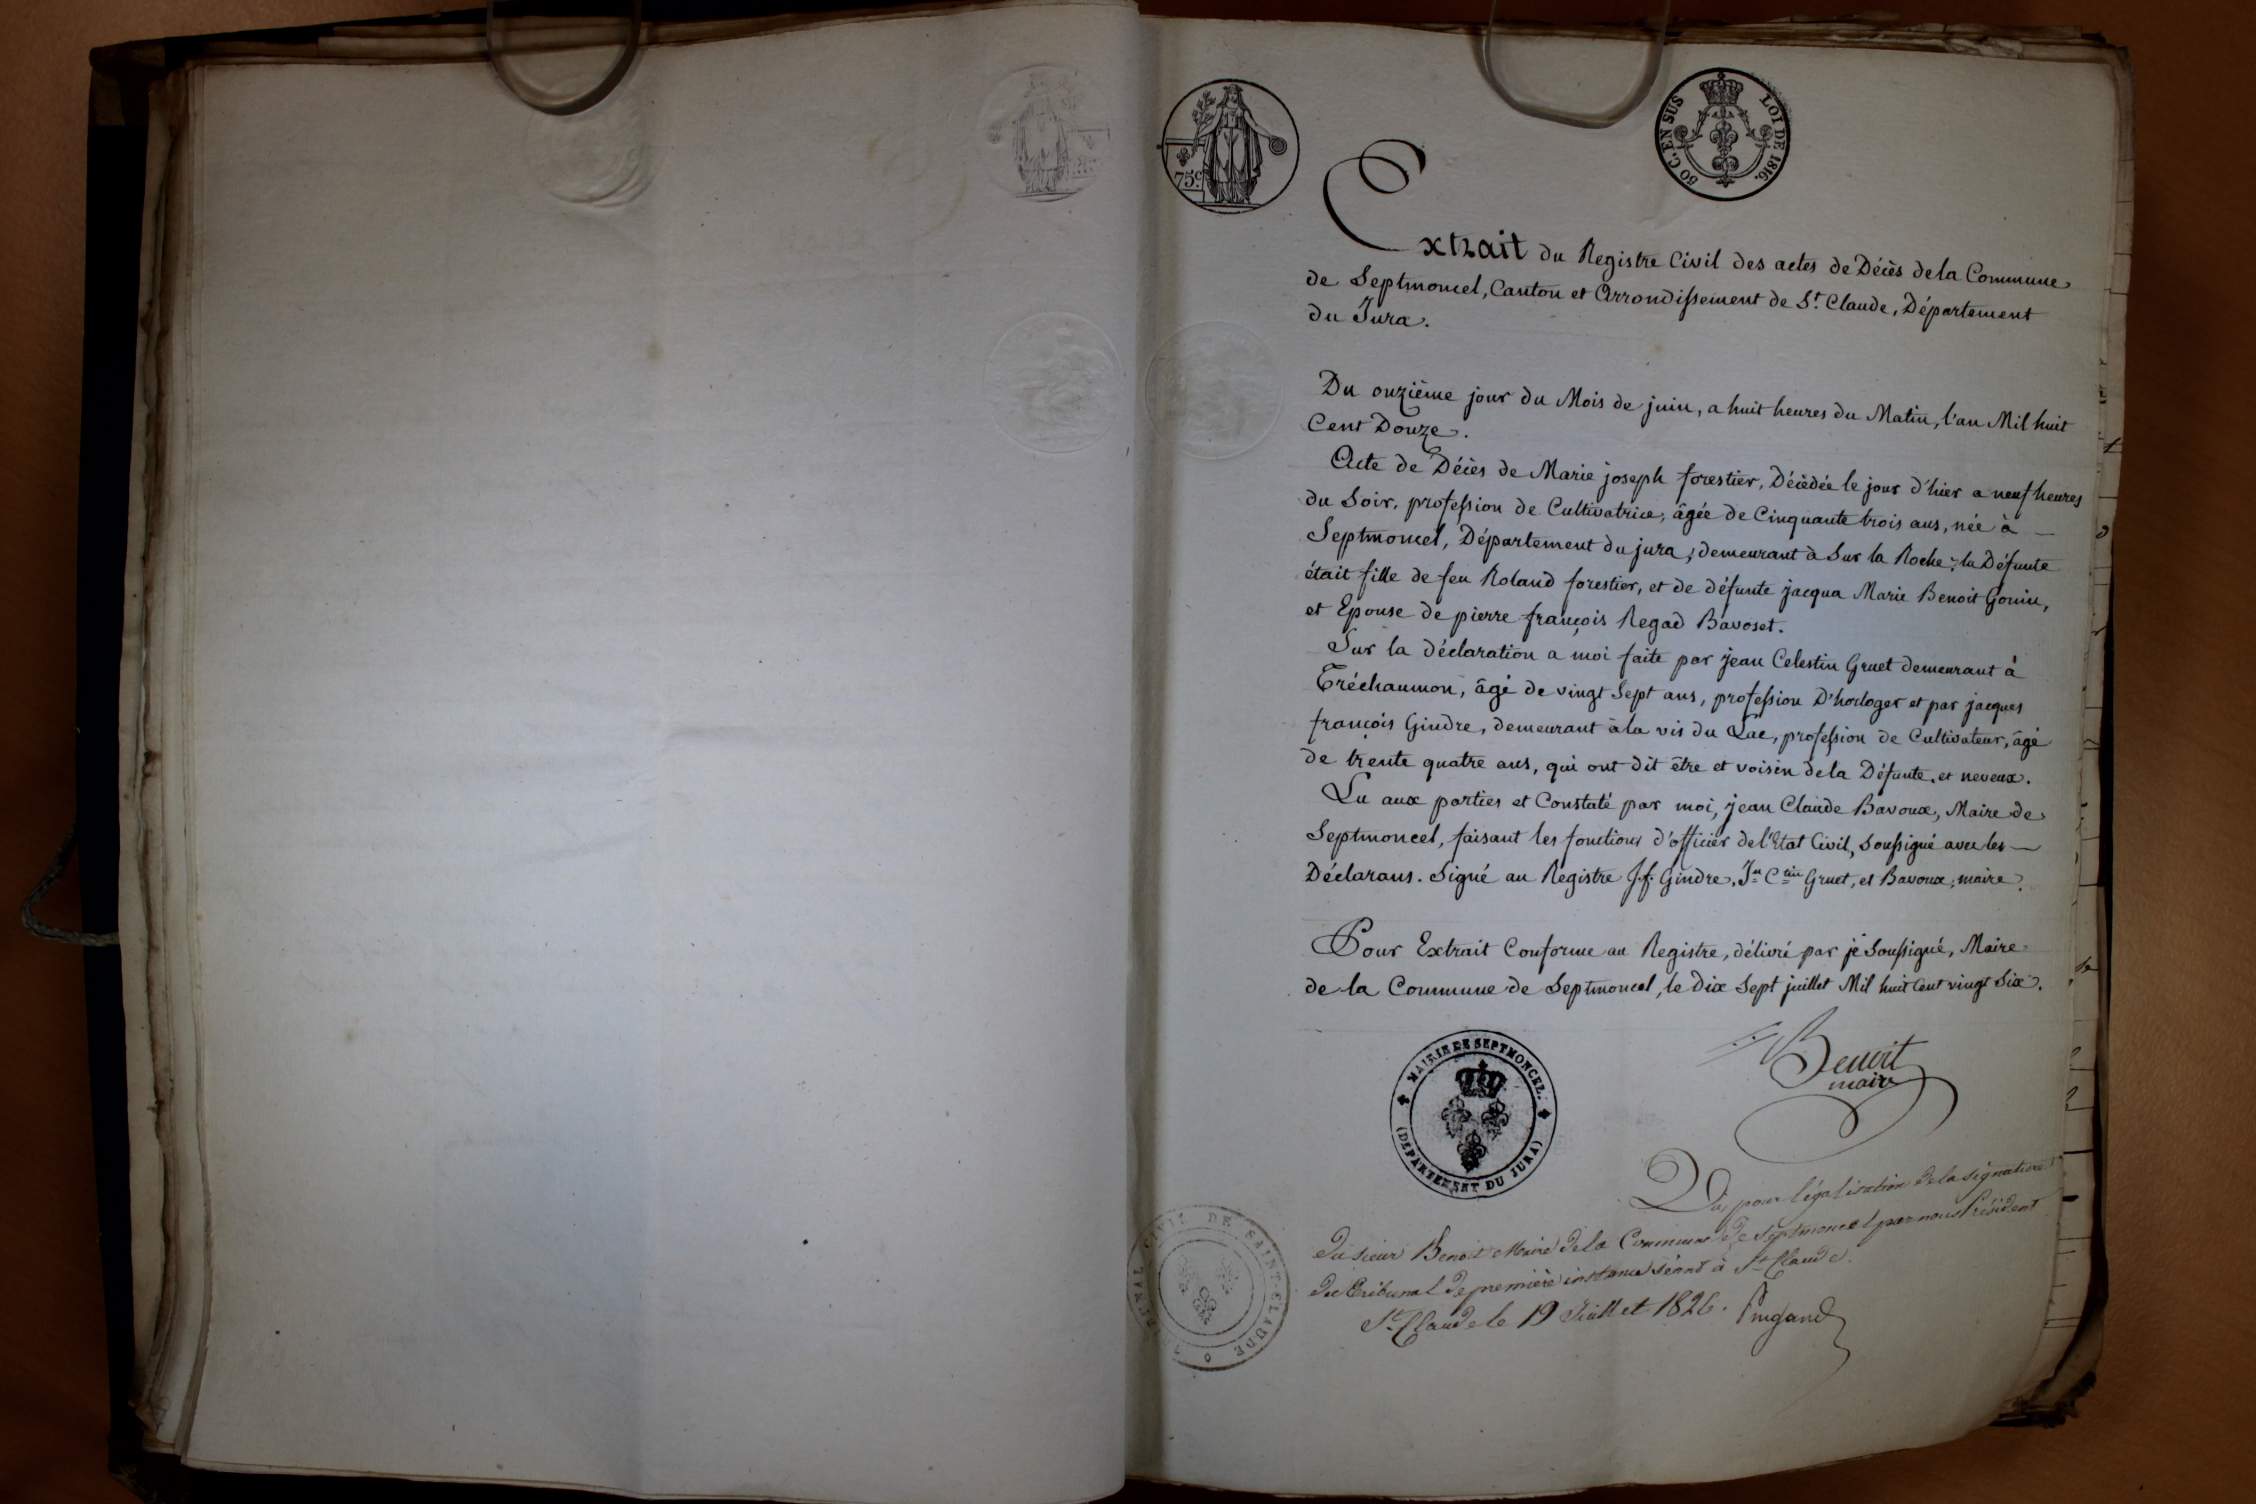 75c
50 C. EN SUS LOI DE 1816.
Extrait du Registre Civil des actes de Décès de la Commune
de Septmoncel, Canton et Arrondissement de St. Claude, Département
du Jura.
Du onzième jour du Mois de juin, a huit heures du Matin, l'an Mil huit
Cent Douze.
Acte de Décès de Marie joseph forestier, Décédée le jour d'hier a neuf heures
du Soir, profession de Cultivatrice, âgée de Cinquante trois ans, née à —
Septmoncel, Département du jura, demeurant à Sur la Roche; la Défunte
était fille de feu Roland forestier, et de défunte jacqua Marie Benoit Gonin,
et Epouse de pierre françois Regad Bavoset.
Sur la déclaration a moi faite par jean Celestin Gruet demeurant à
Tréchaumon, âgé de vingt Sept ans, profession D'horloger et par jacques
françois Gindre, demeurant à la vis du Lac, profession de Cultivateur, âgé
de trente quatre ans, qui ont dit être et voisin de la Défunte. et neveux.
Lu aux parties et Constaté par moi, jean Claude Bavoux, Maire de
Septmoncel, faisant les fonctions d'officier de l'Etat Civil, Soussigné avec les —
Déclarans. Signé au Registre J.f. Gindre, Jn Ctin Gruet, et Bavoux, maire.
Pour Extrait Conforme au Registre, délivré par je Soussigné, Maire
de la Commune de Septmoncel, le Dix Sept juillet Mil huit Cent vingt Six.
Benoit
maire
MAIRIE DE SEPTMONCEL.
(DEPARTEMENT DU JURA)
Vu pour légalisation de la signature
du sieur Benoit Maire de la Commune de Septmoncel par nous Président
du Tribunal de première instance séant à St. Claude.
St. Claude le 19 Juillet 1826.
CIVIL DE SAINT CLAUDE